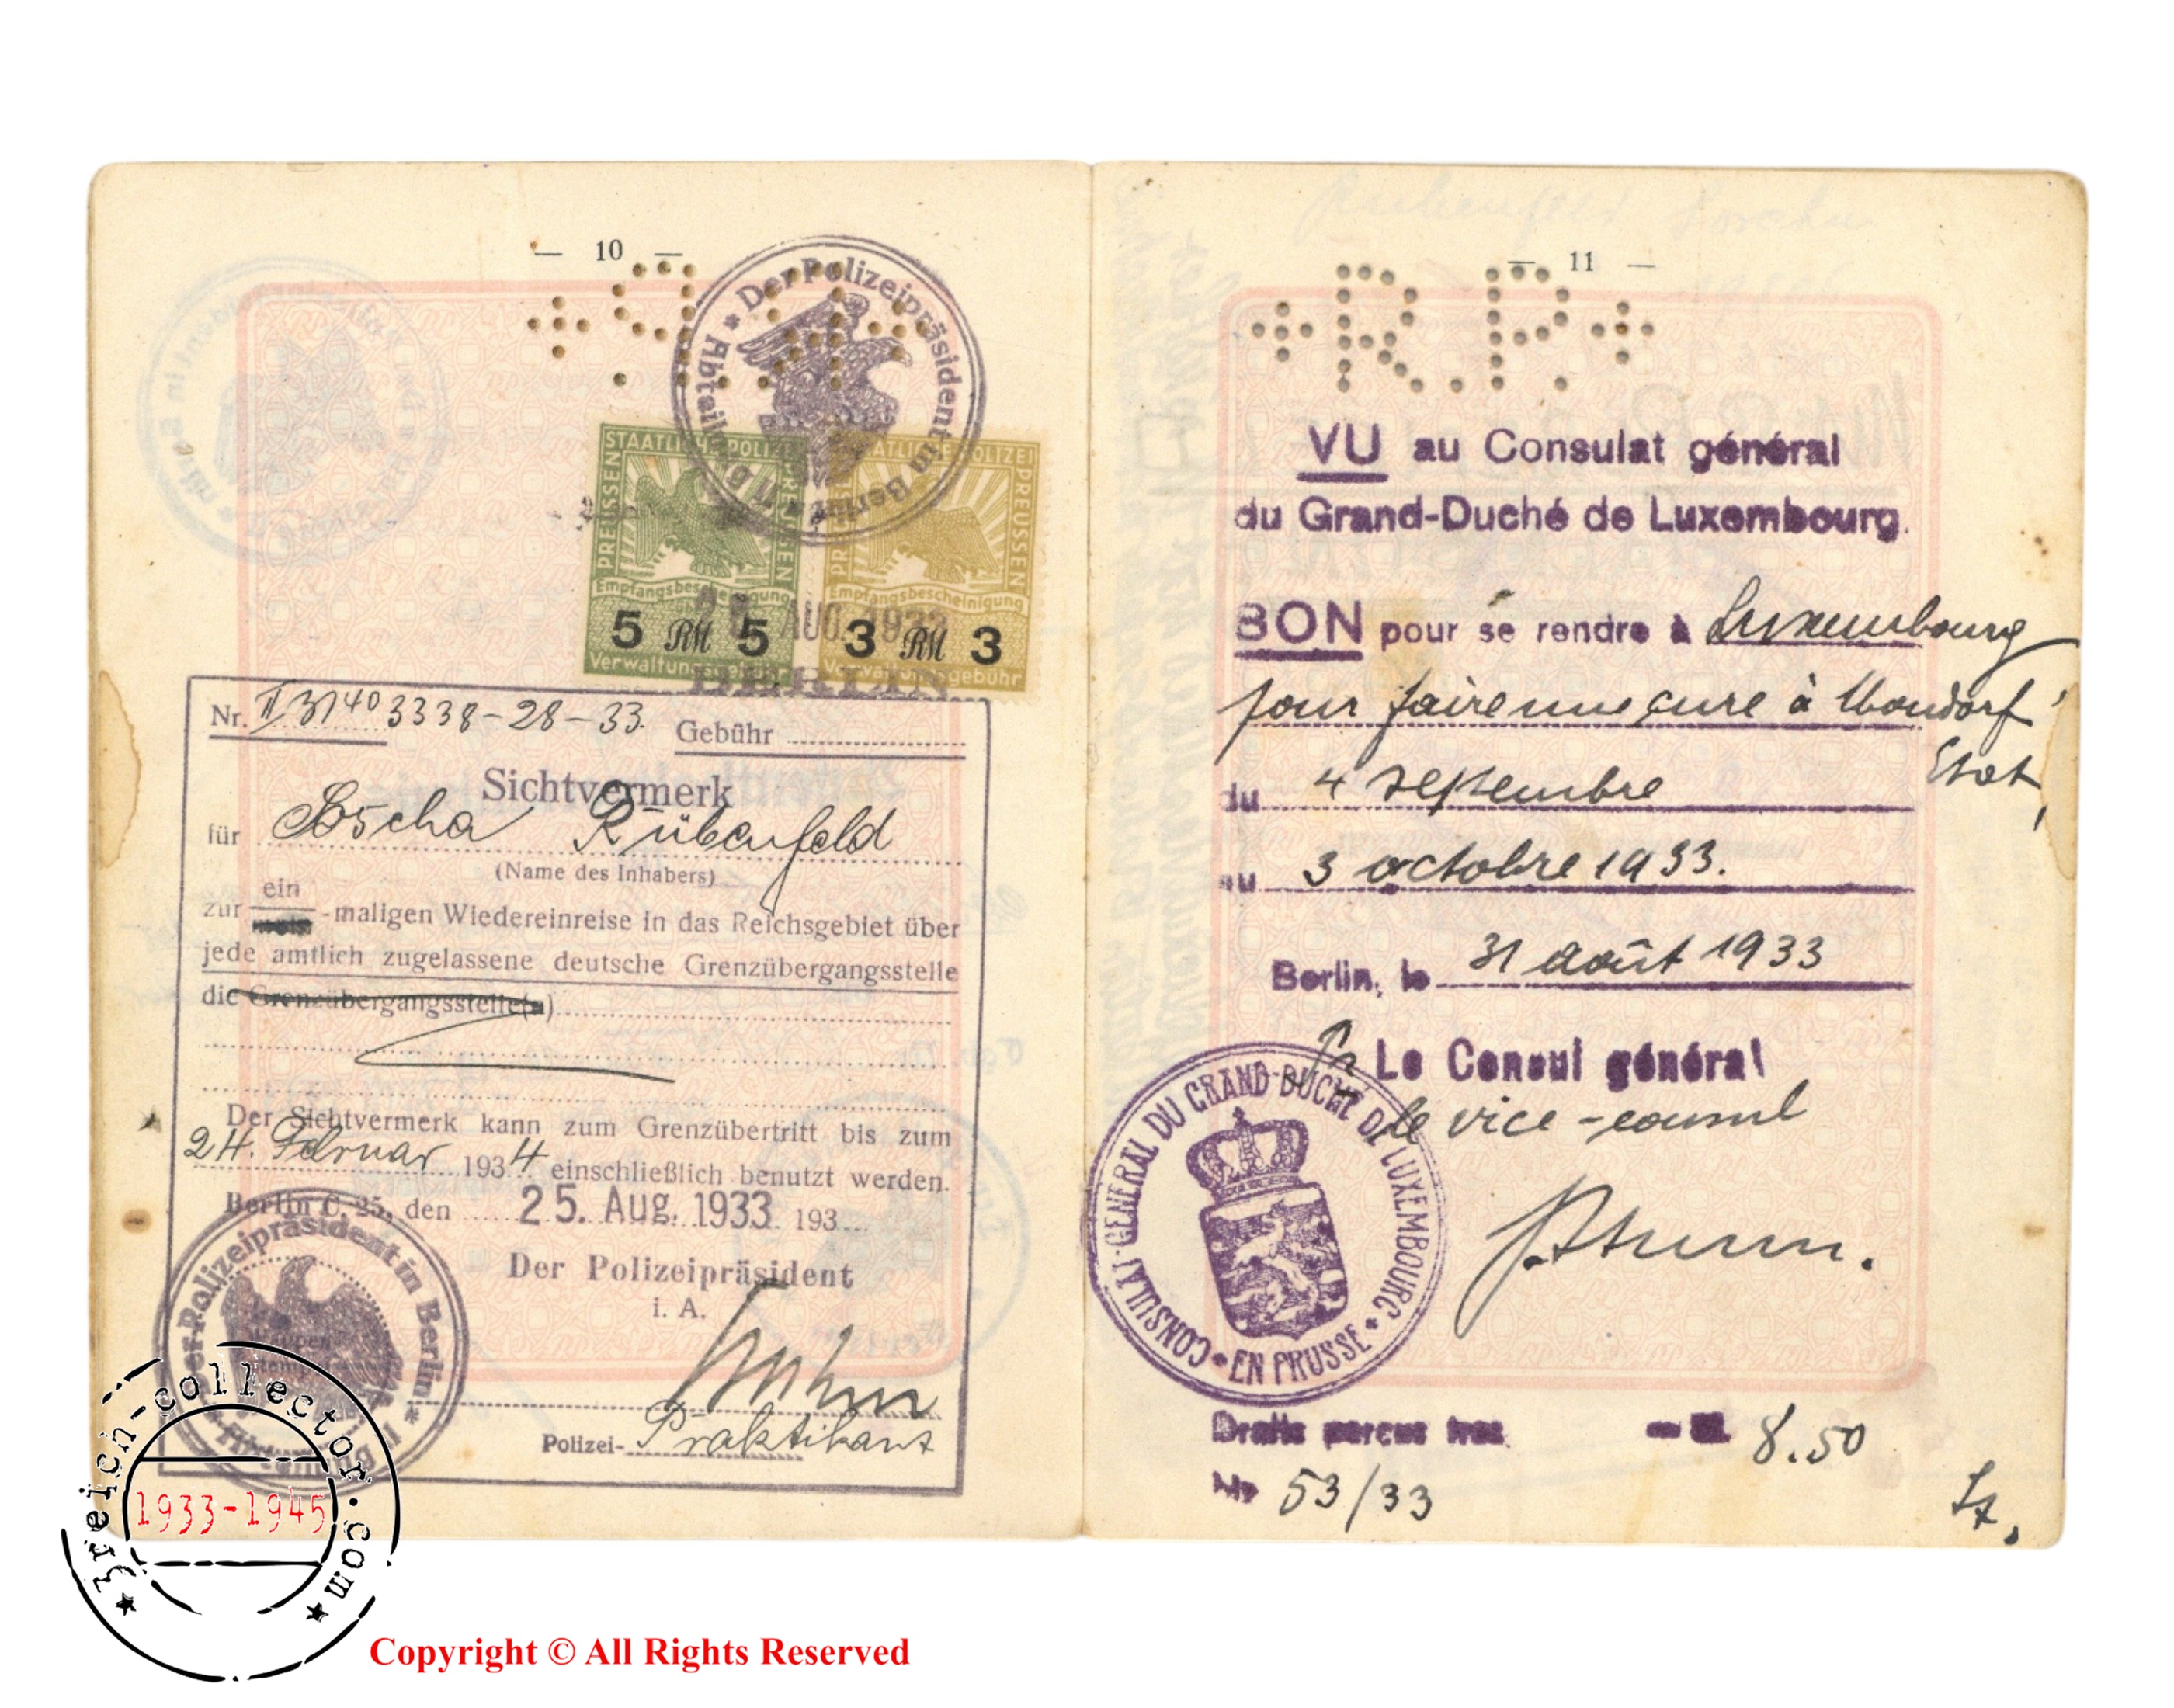 — 10 —
+R.P.+
* Der Polizeipräsident in Berlin *
STAATLICHE POLIZEI
PREUSSEN
PREUSSEN
Empfangsbescheinigung
5 RM 5
Verwaltungsgebühr
STAATLICHE POLIZEI
PREUSSEN
PREUSSEN
Empfangsbescheinigung
3 RM 3
Verwaltungsgebühr
AUG. 1933
BERLIN
Nr. 3338-28-33. Gebühr
Sichtvermerk
für Soscha Rübenfeld
(Name des Inhabers)
ein
zur -maligen Wiedereinreise in das Reichsgebiet über
jede amtlich zugelassene deutsche Grenzübergangsstelle
die Grenzübergangsstelle(n)
Der Sichtvermerk kann zum Grenzübertritt bis zum
24. Februar 1934 einschließlich benutzt werden.
Berlin C. 25, den 25. Aug. 1933 193
Der Polizeipräsident
i. A.
Polizei- Praktikant
Der Polizeipräsident in Berlin *
— 11 —
+R.P.+
VU au Consulat général
du Grand-Duché de Luxembourg.
BON pour se rendre à Luxembourg
pour faire une cure à Mondorf
Etat,
du 4 septembre
au 3 octobre 1933.
Berlin, le 31 août 1933
Le Consul général
le vice-consul
CONSULAT-GENERAL DU GRAND-DUCHÉ DE LUXEMBOURG
• EN PRUSSE •
Droits perçus frcs. 8.50
No 53/33
3reich-collector.com
1933-1945
Copyright © All Rights Reserved